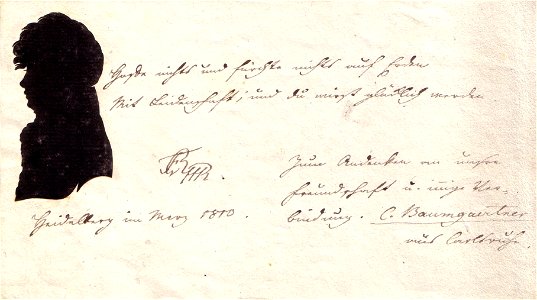 Hoffe nichts und fürchte nichts auf Erden
Mit Leidenschaft; und du wirst glücklich werden
Heidelberg im Merz 1810.
Zum Andenken an unsre
Freundschaft u. innige Ver-
bindung. C. Baumgaertner
aus Carlsruhe.